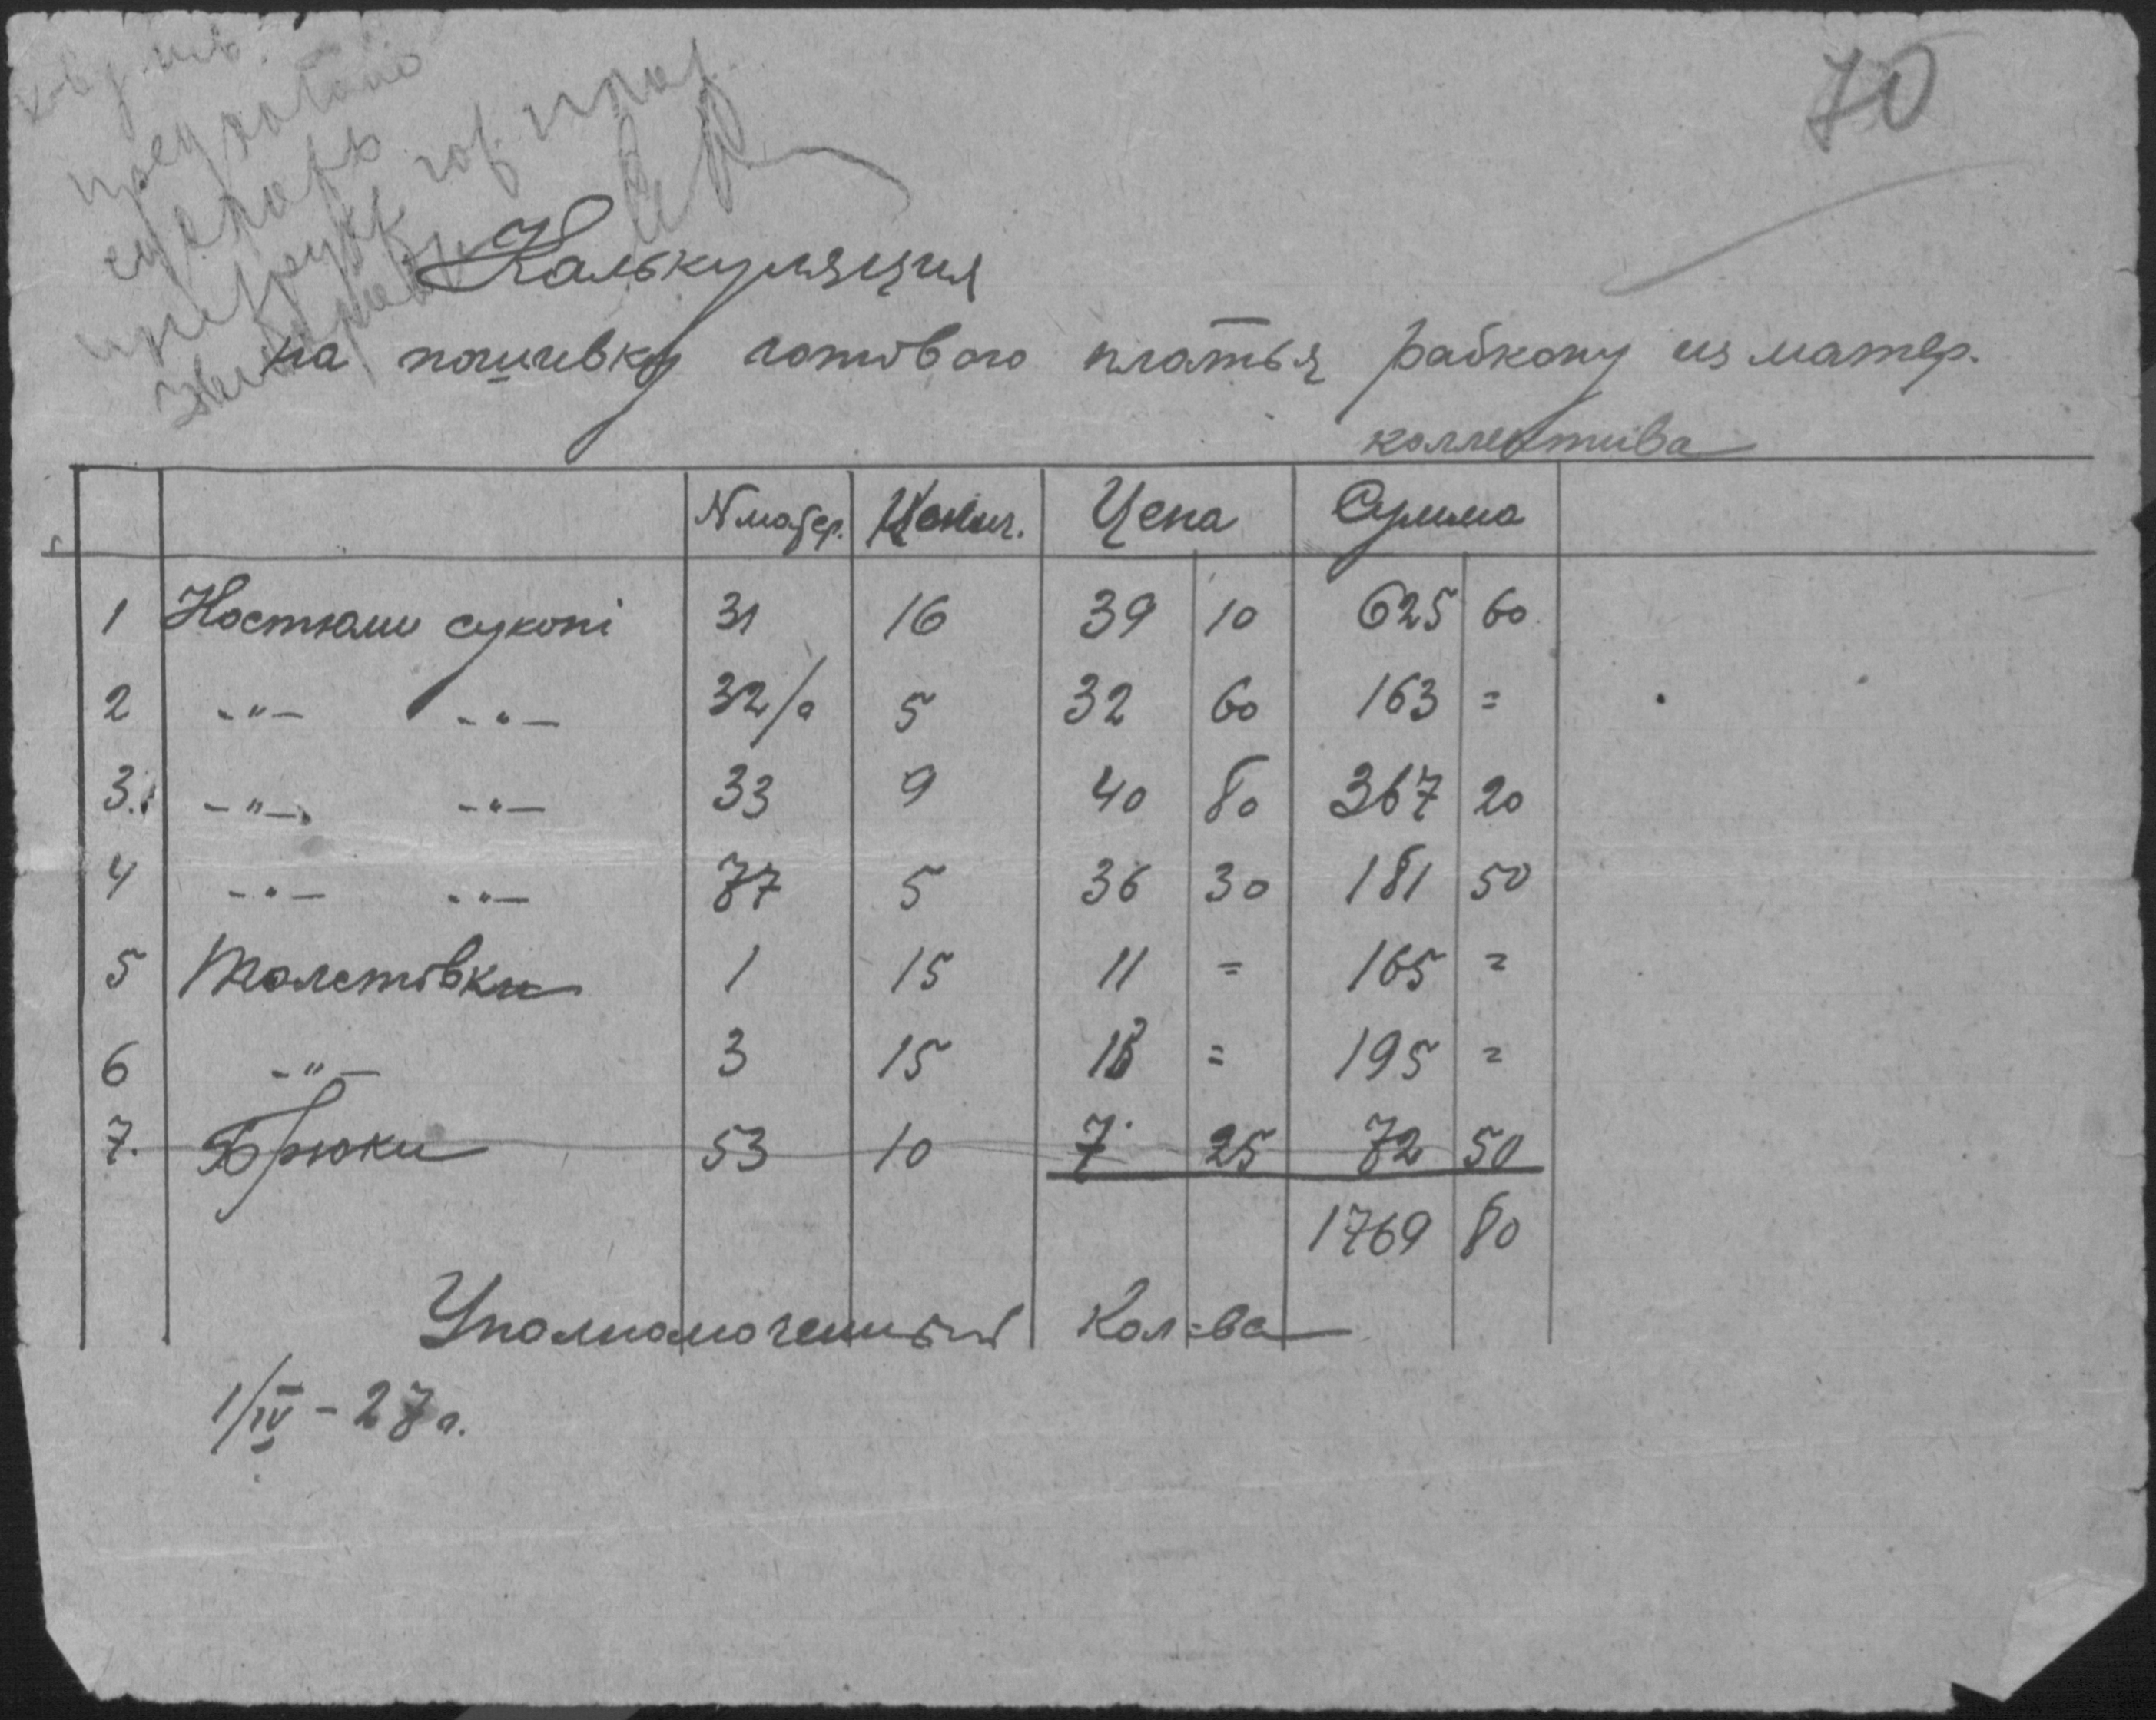 70
предложено
Калькуляция
на пошивку готового платья рабкопу из матер.
коллектива
№ матер. Колич. Цена Сумма
1 Костюми суконі 31 16 39 10 625 60
2 -"- -"- 32/а 5 32 60 163 =
3. -"- -"- 33 9 40 80 367 20
4 -"- -"- 77 5 36 30 181 50
5 Толстовки 1 15 11 = 165 =
6 -"- 3 15 13 = 195 =
7. Брюки 53 10 7 25 72 50
1769 80
Уполномоченный Кол-ва
1/IV - 27 г.